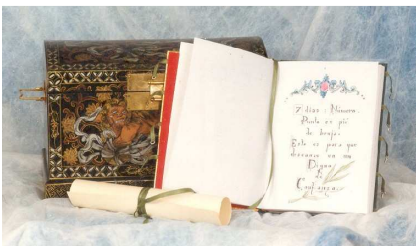 7 días : Número
Ponte en pié
de brujo
Este es para que
descanse en un
Digno
de
Confianza